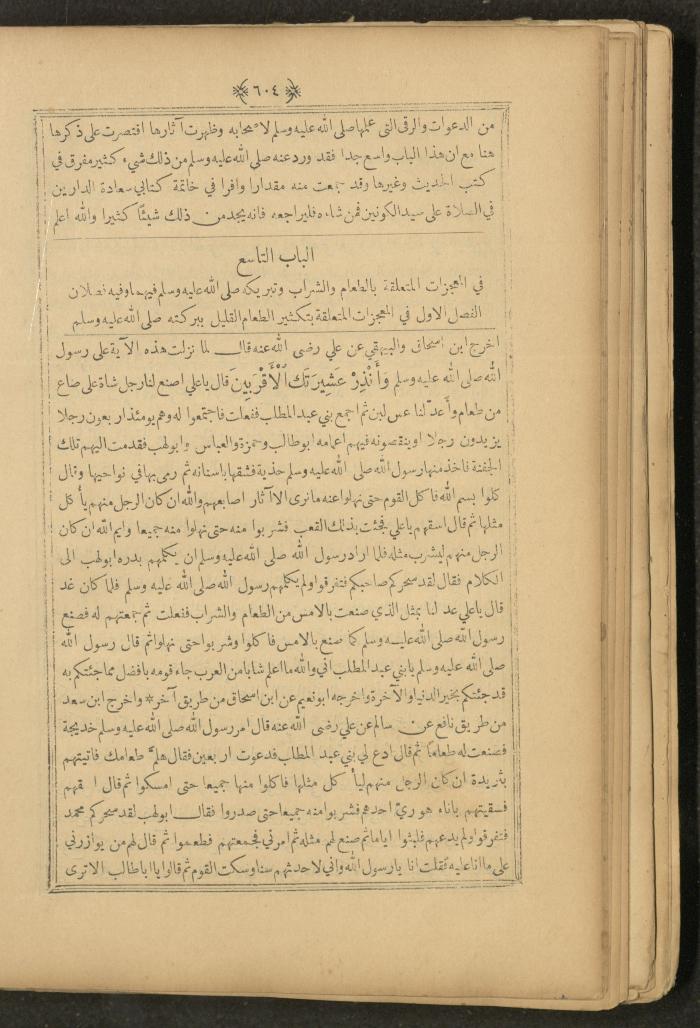 ٦٠٤
من الدعوات والرقى التي عملها صلى الله عليه وسلم لاصحابه وظهرت آثارها اقتصرت على ذكرها
هنا مع ان هذا الباب واسع جدا فقد ورد عنه صلى الله عليه وسلم من ذلك شيء كثير مفرق في
كتب الحديث وغيرها وقد جمعت منه مقدارا وافرا في خاتمة كتابي سعادة الدارين
في الصلاة على سيد الكونين فمن شاءه فليراجعه فانه يجد من ذلك شيئًا كثيرا والله اعلم
الباب التاسع
في المعجزات المتعلقة بالطعام والشراب وتبريكه صلى الله عليه وسلم فيهما وفيه فصلان
الفصل الاول في المعجزات المتعلقة بتكثير الطعام القليل ببركته صلى الله عليه وسلم
اخرج ابن اسحاق والبيهقي عن علي رضى الله عنه قال لما نزلت هذه الآية على رسول
الله صلى الله عليه وسلم وَأَنْذِرْ عَشِيرَتَكَ ٱلْأَقْرَبِينَ قال يا علي اصنع لنا رجل شاة على صاع
من طعام وأعدّ لنا عس لبن ثم اجمع بني عبد المطلب ففعلت فاجتمعوا له وهم يومئذ اربعون رجلا
يزيدون رجلا او ينقصونه فيهم اعمامه ابوطالب وحمزة والعباس وابولهب فقدمت اليهم تلك
الجفنة فاخذ منها رسول الله صلى الله عليه وسلم حذية فشقها باسنانه ثم رمى بها في نواحيها وقال
كلوا بسم الله فاكل القوم حتى نهلوا عنه ما نرى الا آثار اصابعهم والله ان كان الرجل منهم يأكل
مثلها ثم قال اسقهم يا علي فجئت بذلك القعب فشربوا منه حتى نهلوا منه جميعا وايم الله ان كان
الرجل منهم ليشرب مثله فلما اراد رسول الله صلى الله عليه وسلم ان يكلمهم بدره ابولهب الى
الكلام فقال لقد سحركم صاحبكم فتفرقوا ولم يكلمهم رسول الله صلى الله عليه وسلم فلما كان غد
قال يا علي عد لنا بمثل الذي صنعت بالامس من الطعام والشراب ففعلت ثم جمعتهم له فصنع
رسول الله صلى الله عليه وسلم كما صنع بالامس فاكلوا وشربوا حتى نهلوا ثم قال رسول الله
صلى الله عليه وسلم يا بني عبد المطلب اني والله ما اعلم شابا من العرب جاء قومه بافضل مما جئتكم به
قد جئتكم بخير الدنيا والآخرة واخرجه ابو نعيم عن ابن اسحاق من طريق آخر * واخرج ابن سعد
من طريق نافع عن سالم عن علي رضى الله عنه قال امر رسول الله صلى الله عليه وسلم خديجة
فصنعت له طعامًا ثم قال ادع لي بني عبد المطلب فدعوت اربعين فقال هلمّ طعامك فاتيتهم
بثريدة ان كان الرجل منهم ليأكل مثلها فاكلوا منها جميعا حتى امسكوا ثم قال اسقهم
فسقيتهم باناء هو ريّ احدهم فشربوا منه جميعا حتى صدروا فقال ابولهب لقد سحركم محمد
فتفرقوا ولم يدعهم فلبثوا اياما ثم صنع لهم مثله ثم امرني فجمعتهم فطعموا ثم قال لهم من يوازرني
على ما انا عليه فقلت انا يا رسول الله واني لاحدثهم سنا وسكت القوم ثم قالوا يا ابا طالب الا ترى